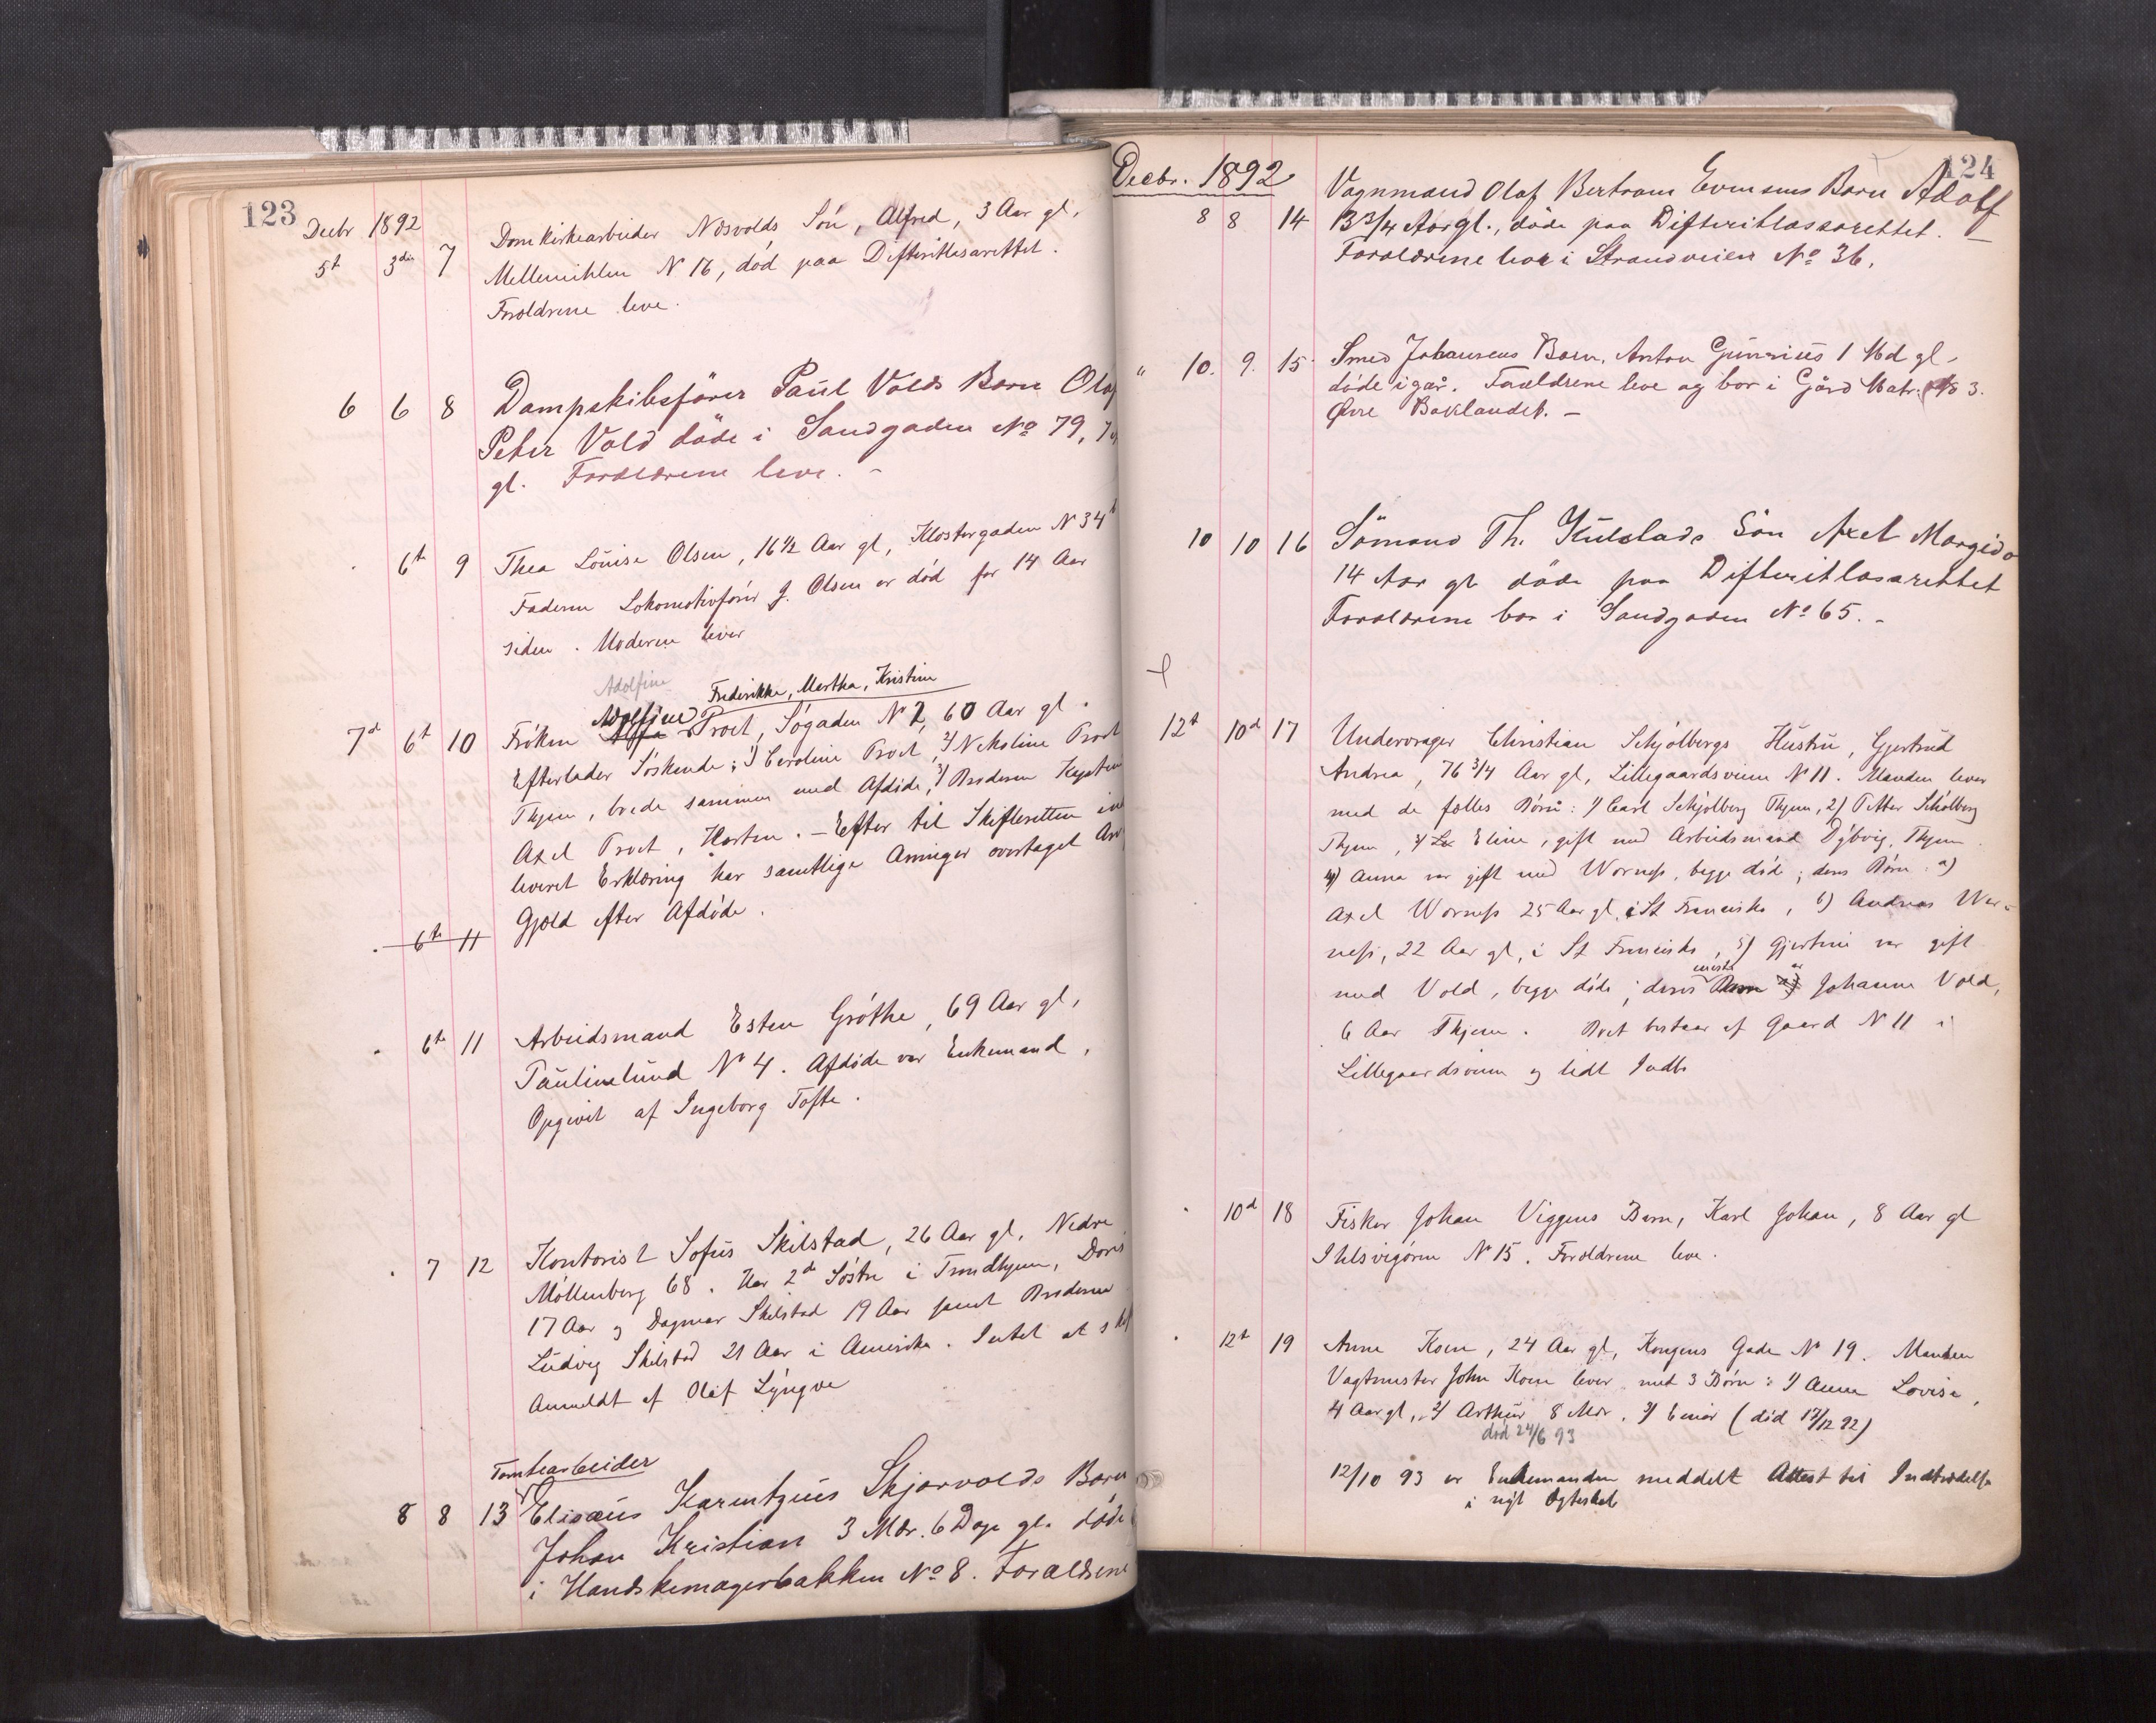 123
Decbr 1892
5t 3die 7 Domkirkearbeider Nosvolds Søn, Alfred, 3 Aar gl,
Mellemihlen N 16, død paa Difteritlasarettet.
Forældrene leve.
6 6 8 Dampskibsfører Paul Volds Barn Olaf
Peter Vold døde i Sandgaden No 79, 7
gl. Forældrene leve. -
6t 9 Thea Louise Olsen, 16½ Aar gl, Klostergaden N 34
Faderen Lokomotivfører J. Olsen er død for 14 Aar
siden. Moderen lever
Adolfine
Frederikke, Martha, Kristine
7d 6t 10 Frøken Adolfine Troet, Søgaden N 2, 60 Aar gl.
Efterlader Søskende: 1) Caroline Troet, 2) Nekoline Troet
Thjem, boede sammen med Afdøde, 3) Broderen Kaptein
Axel Troet, Horten. - Efter til Skifteretten ind
leveret Erklæring har samtlige Arvinger overtaget Arv
Gjæld efter Afdøde.
6te 11
6te 11 Arbeidsmand Esten Grøthe, 69 Aar gl,
Paulinelund No 4. Afdøde var Enkemand.
Opgivet af Ingeborg Tofte.
7 12 Kontorist Sofus Skilstad, 26 Aar gl, Nedre
Møllenberg 68. Har 2de Søstre i Trondhjem, Doris
17 Aar og Dagmar Skilstad 19 Aar samt Broderen
Ludvig Skilstad 21 Aar i Amerika. Intet at skif
Anmeldt af Olaf Lyngve
Tomtearbeider
8 8 13 Elisæus Karentzius Skjærvolds Barn
Johan Kristian 3 Mdr. 6 Dage gl. døde
i Handskemagerbakken No 8. Forældrene
124
Decbr. 1892
Vognmand Olaf Bertram Evensens Barn Adolf
8 8 14 13 3/4 Aar gl., døde paa Difteritlassarettet. -
Forældrene bor i Strandveien No 36.
" 10. 9. 15. Smed Johansens Barn, Anton Gunerius 1 Md gl -
døde igår. Forældrene leve og bor i Gård Matr. No 3.
Øvre Baklandet. -
10 10 16 Sømand Th. Kulslads Søn Axel Margido
14 Aar gl døde paa Difteritlasarettet
Forældrene bor i Sandgaden No 65. -
12t 10d 17 Undervrager Christian Schjølbergs Hustru, Gjertrud
Andrea, 76 3/4 Aar gl, Lillegaardsveien N 11. Manden lever
med de fælles Børn: 1) Carl Schjølberg Thjem, 2) Petter Schølberg
Thjem, 3) Eline, gift med Arbeidsmand Dybvig, Thjem.
4) Anna var gift med Worness, begge døde; deres Børn: a)
Axel Worness 25 Aar gl, i St Francisko, b) Andreas Wor-
ness, 22 Aar gl, i St Francisko, 5) Gjertine var gift
med Vold, begge døde; deres eneste Barn er Johanna Vold,
6 Aar Thjem. Boet bestaar af Gaard N 11 i
Lillegaardsveien og lidt Indbo
10d 18 Fisker Johan Viggens Barn, Karl Johan, 8 Aar gl
Ihlsvigøren No 15. Forældrene leve.
12t 19 Anne Koen, 24 Aar gl, Kongens Gade No 19. Manden
Vagtmester John Koen lever med 3 Børn: 1) Anna Lovise,
4 Aar gl, 2) Arthur 8 Mdr, 3) Einar (død 17/12 92)
død 24/6 93
12/10 93 er Enkemanden meddelt Attest til Indtrædelse
i nyt Ægteskab